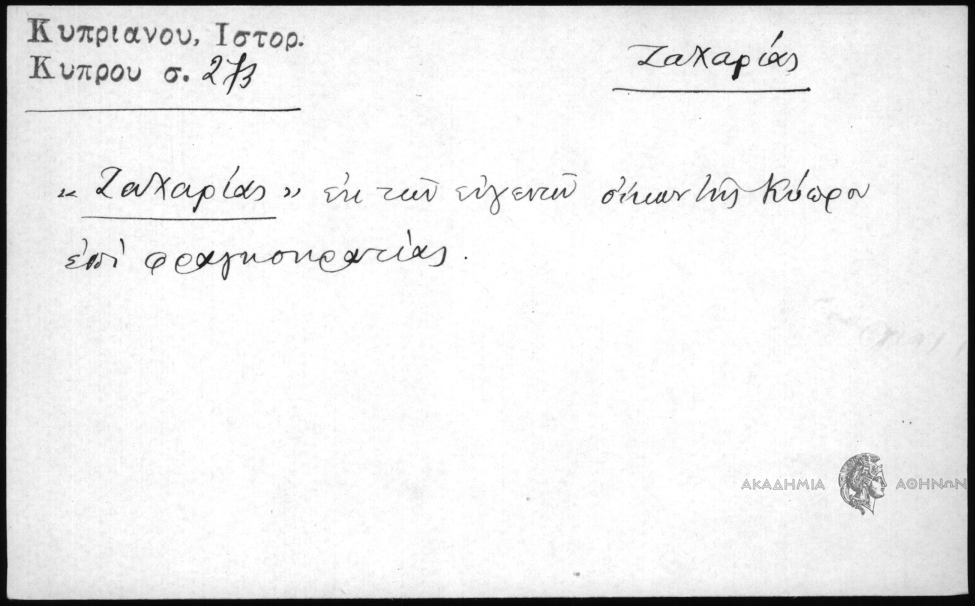 Κυπριανου, Ιστορ.
Κυπρου σ. 273
Ζαχαρίας
"Ζαχαρίας" ἐκ τῶν εὐγενῶν οἴκων τῆς Κύπρου
ἐπὶ φραγκοκρατίας.
ΑΚΑΔΗΜΙΑ ΑΘΗΝΩΝ